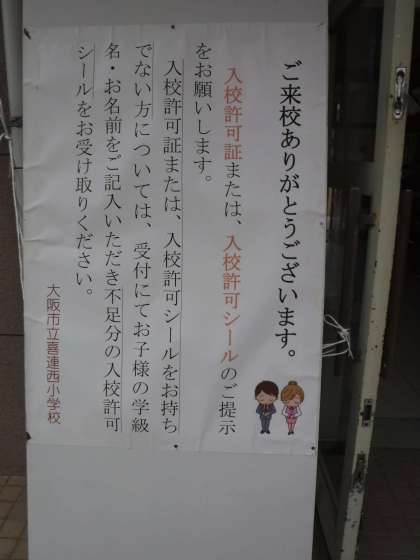 ご来校ありがとうございます。
入校許可証または、入校許可シールのご提示
をお願いします。
入校許可証または、入校許可シールをお持ち
でない方については、受付にてお子様の学級
名・お名前をご記入いただき不足分の入校許可
シールをお受け取りください。
大阪市立喜連西小学校